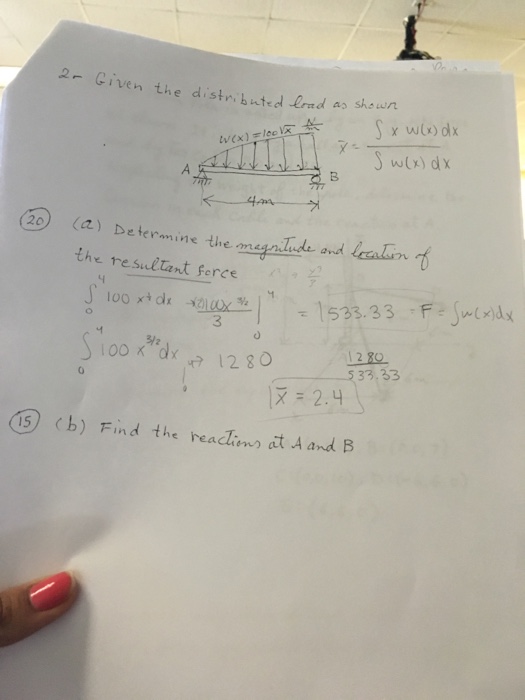 2- Given the distributed load as shown
w(x) = 100√x N/m
x̄ = ∫ x w(x) dx / ∫ w(x) dx
A B
4m
(20) (a) Determine the magnitude and location of
the resultant force
∫₀⁴ 100 x^½ dx 200x^3/2 / 3 |₀⁴ = 533.33 = F = ∫w(x)dx
∫₀⁴ 100 x^3/2 dx → 1280 1280 / 533.33
x̄ = 2.4
(15) (b) Find the reactions at A and B